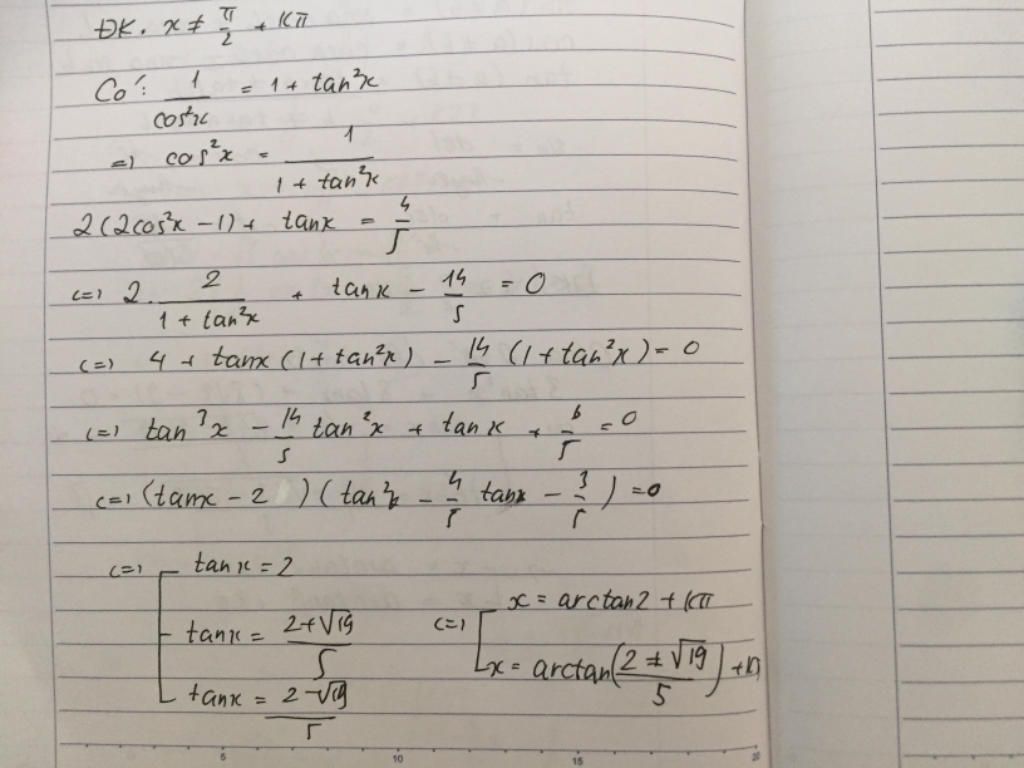 ĐK. x ≠ π/2 + kπ
Có: 1/cos²x = 1 + tan²x
=> cos²x = 1/(1 + tan²x)
2(2cos²x - 1) + tanx = 4/5
<=> 2. 2/(1 + tan²x) + tanx - 14/5 = 0
<=> 4 + tanx(1 + tan²x) - 14/5 (1 + tan²x) = 0
<=> tan³x - 14/5 tan²x + tanx + 6/5 = 0
<=> (tanx - 2)(tan²x - 4/5 tanx - 3/5) = 0
<=> tanx = 2
tanx = (2+√19)/5
tanx = (2-√19)/5
<=> x = arctan2 + kπ
x = arctan((2±√19)/5) + kπ
5 10 15 20